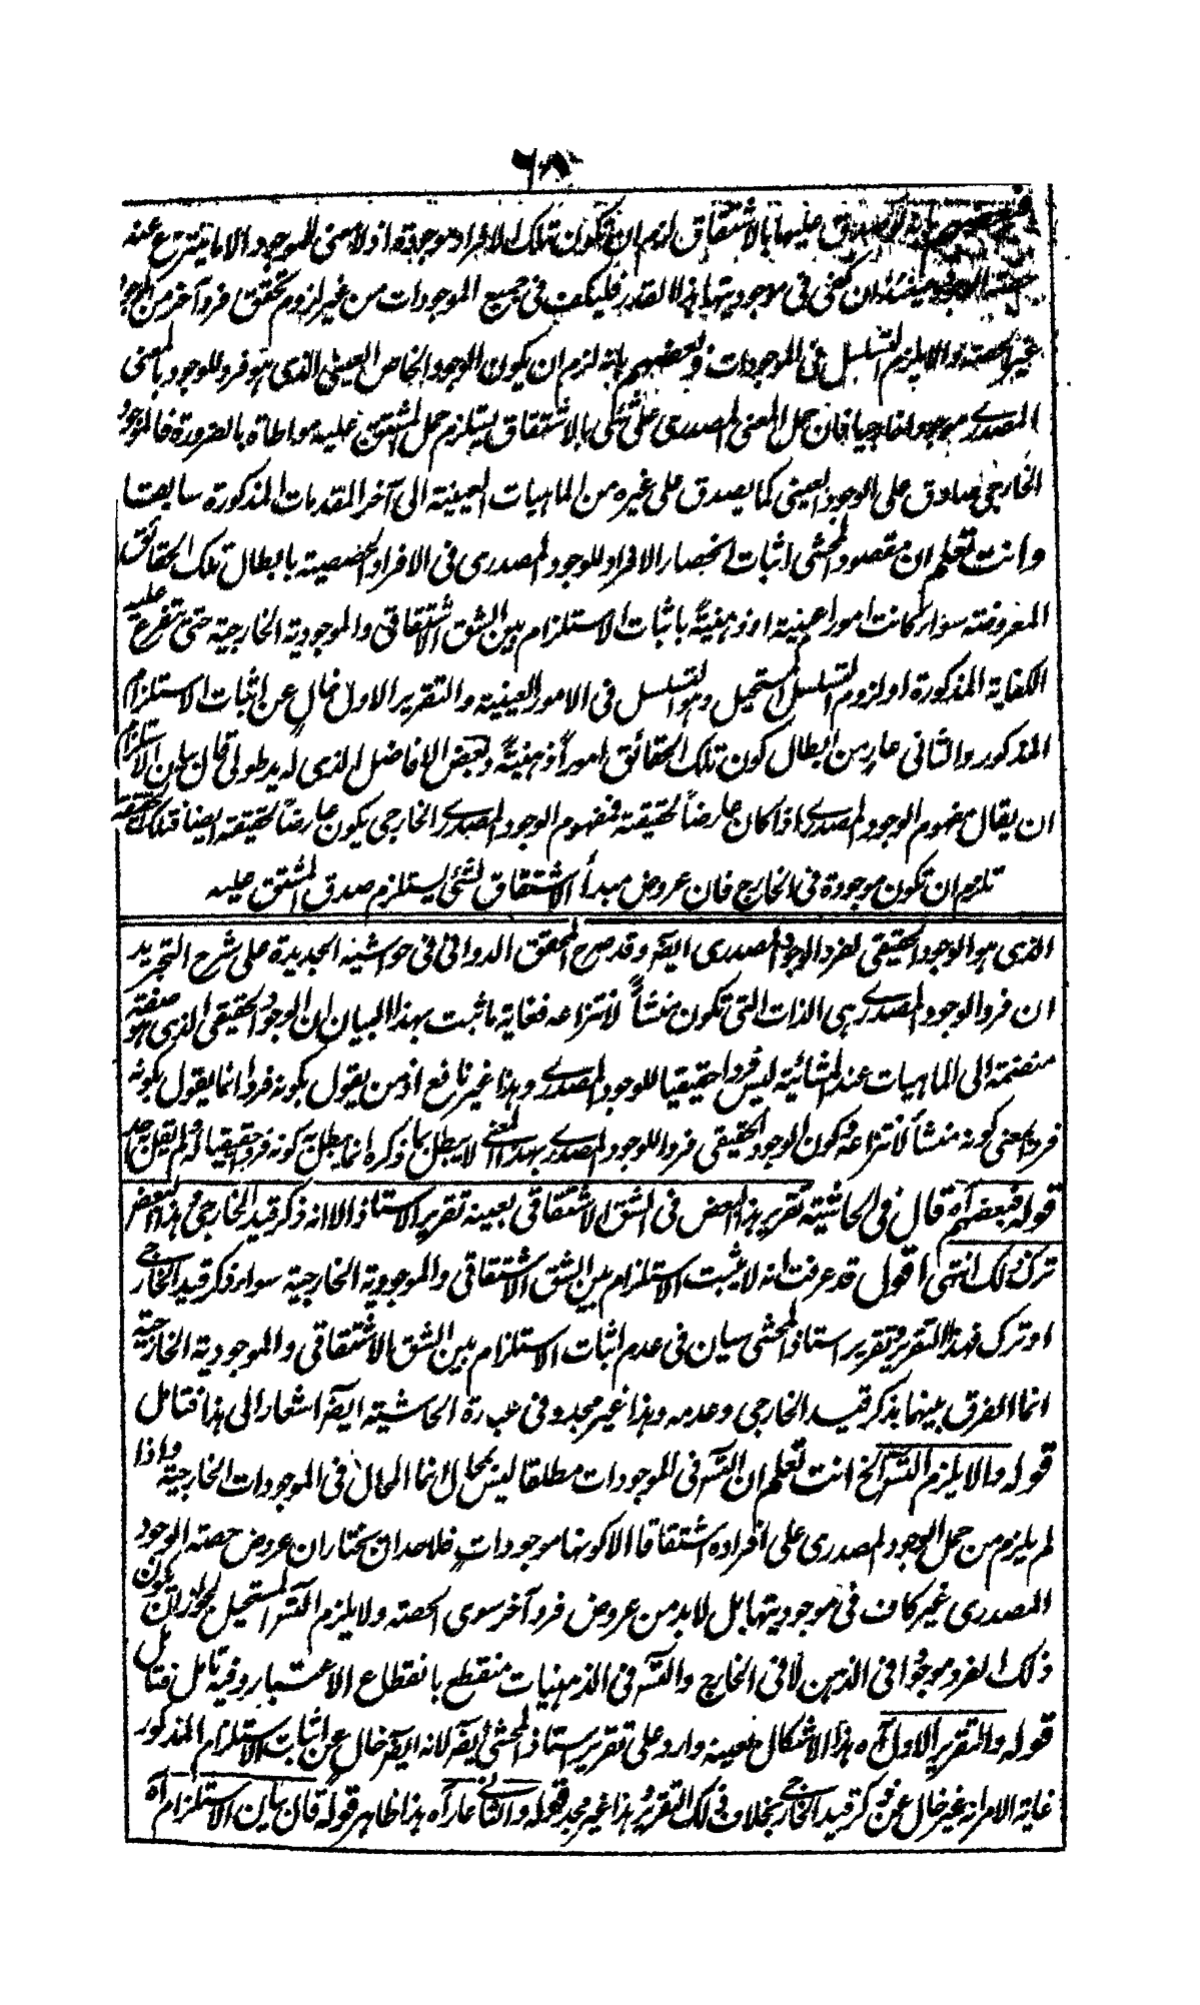 بانه لو صدق عليها بالاشتقاق لزم ان تكون تلك الافراد موجودة اذ لا معنى للموجود الا ما ينتزع عنه
حينئذ ان كفى فى موجوديتها هذا القدر فليكف فى جميع الموجودات من غير لزوم تحقق فرد آخر من الوجود
غير الحصة والا يلزم التسلسل فى الموجودات وبعضهم بانه لزم ان يكون الوجود الخاص العينى الذى هو فرد للوجود بالمعنى
المصدرى موجودا خارجيا فان حمل المعنى المصدرى على شئ بالاشتقاق يستلزم حمل المشتق عليه مواطاة بالضرورة فالموجود
الخارجى صادق على الوجود العينى كما يصدق على غيره من الماهيات العينية الى آخر المقدمات المذكورة سابقا
وانت تعلم ان مقصود المحشى اثبات انحصار الافراد للوجود المصدرى فى الافراد الحصصية بابطال تلك الحقائق
المعروضة سواء كانت امورا عينية او ذهنية باثبات الاستلزام بين الشق الاشتقاقى والموجودية الخارجية حتى يتفرع عليه
الكفاية المذكورة او لزوم التسلسل المستحيل وهو التسلسل فى الامور العينية والتقرير الاول خال عن اثبات الاستلزام
المذكور والثانى عار من ابطال كون تلك الحقائق امورا ذهنية وبعض الافاضل الذى له يد طولى قال بيان الاستلزام
ان يقال مفهوم الوجود المصدرى اذا كان عارضا لحقيقة فمفهوم الوجود المصدرى الخارجى يكون عارضا لحقيقته ايضا فتلك الحقيقة
تلزم ان تكون موجودة فى الخارج فان عروض مبدأ الاشتقاق لشئ يستلزم صدق المشتق عليه
الذى هو الوجود الحقيقى لفرد الوجود المصدرى ايضا وقد صرح المحقق الدوانى فى حواشيه الجديدة على شرح التجريد
ان فرد الوجود المصدرى هى الذات التى تكون منشأ لانتزاعه فغاية ما ثبت بهذا البيان ان الوجود الحقيقى الذى هو صفة
منضمة الى الماهيات عند المشائية ليس فردا حقيقيا للوجود المصدرى وهذا غير نافع اذ من يقول بكونه فردا انما يقول بكونه
فردا بمعنى كونه منشأ لانتزاعه فكون الوجود الحقيقى فردا للوجود المصدرى بهذا المعنى لا يبطل بما ذكره انما يبطل كونه فردا حقيقيا ولم يقل به احد
قوله فبعضهم آه قال فى الحاشية تقرير هذا البعض فى الشق الاشتقاقى بعينه تقرير الاستاذ الا انه ذكر قيد الخارجى وهذا البعض
ترك ذلك انتهى اقول قد عرفت انه لا يثبت الاستلزام بين الشق الاشتقاقى والموجودية الخارجية سواء ذكر قيد الخارجى
او ترك فهذا التقرير وتقرير استاذ المحشى سيان فى عدم اثبات الاستلزام بين الشق الاشتقاقى والموجودية الخارجية
انما الفرق بينهما بذكر قيد الخارجى وعدمه وهذا غير مجد وفى عبارة الحاشية ايضا اشعار الى هذا فتامل
قوله والا يلزم التس الخ انت تعلم ان التس فى الموجودات مطلقا ليس بمحال انما المحال فى الموجودات الخارجية واذا
لم يلزم من حمل الوجود المصدرى على افراده اشتقاقا الا كونها موجودات فلاحد ان يختار ان عروض حصة الوجود
المصدرى غير كاف فى موجوديتها بل لابد من عروض فرد آخر سوى الحصة ولا يلزم التس المستحيل لجواز ان يكون
ذلك الفرد موجودا فى الذهن لا فى الخارج والتس فى الذهنيات منقطع بانقطاع الاعتبار وفيه تامل فتامل
قوله والتقرير الاول آه هذا الاشكال بعينه وارد على تقرير استاذ المحشى ايضا لانه ايضا خال عن اثبات الاستلزام المذكور
غاية الامر انه غير خال عن ذكر قيد الخارجى بخلاف ذلك التقرير وهذا غير مجد قوله والثانى عار آه هذا ظاهر قوله قال بيان الاستلزام آه